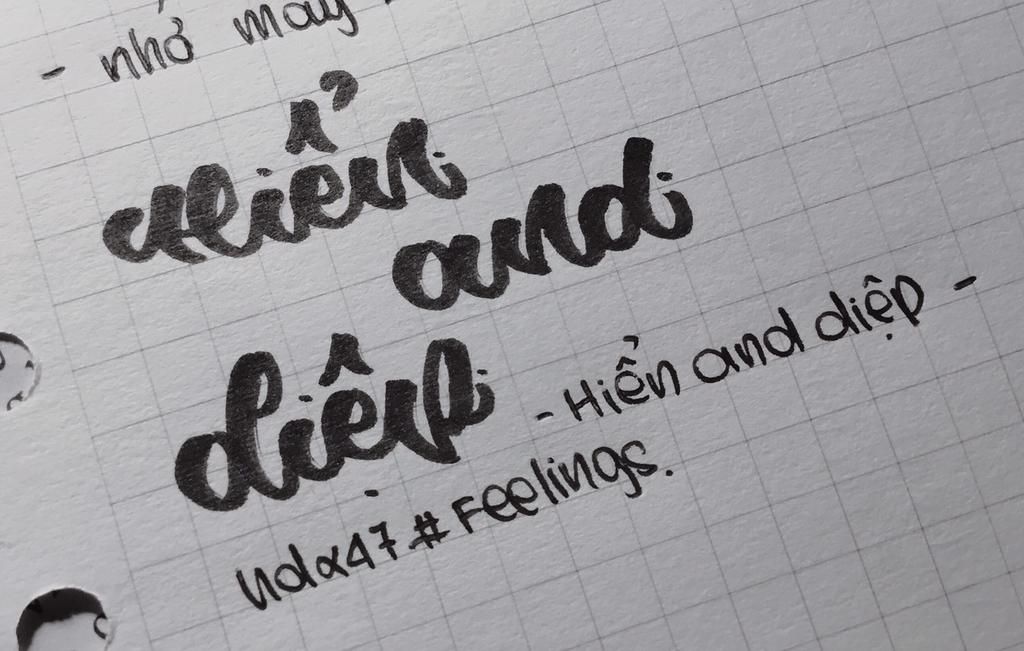 - nhỏ may
Hiển
and
diệp
- Hiển and diệp -
ndx47 # Feelings.